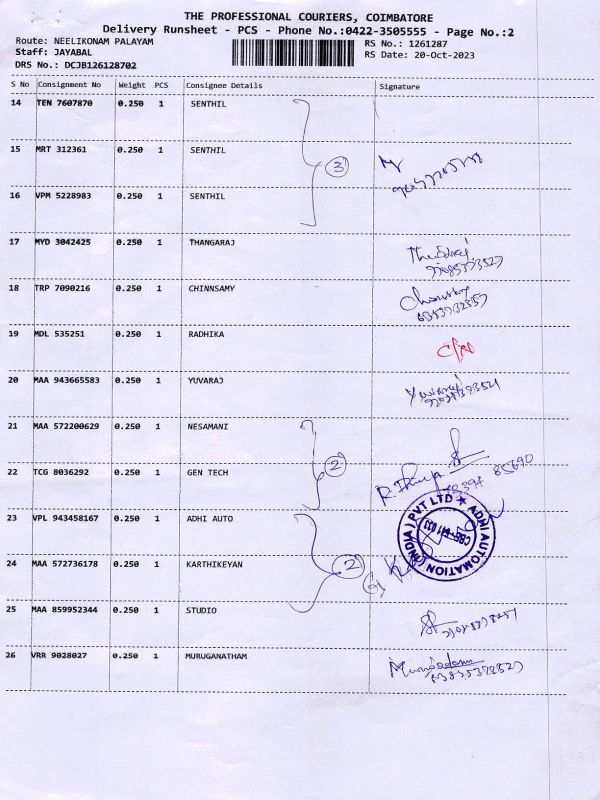 THE PROFESSIONAL COURIERS, COIMBATORE
Delivery Runsheet - PCS - Phone No.:0422-3505555 - Page No.:2
Route: NEELIKONAM PALAYAM
Staff: JAYABAL
DRS No.: DCJB126128702
RS No.: 1261287
RS Date: 20-Oct-2023
S No Consignment No Weight PCS Consignee Details Signature
14 TEN 7607870 0.250 1 SENTHIL
15 MRT 312361 0.250 1 SENTHIL
3
16 VPM 5228983 0.250 1 SENTHIL
17 MYD 3042425 0.250 1 THANGARAJ
18 TRP 7090216 0.250 1 CHINNSAMY
19 MDL 535251 0.250 1 RADHIKA
20 MAA 943665583 0.250 1 YUVARAJ
21 MAA 572200629 0.250 1 NESAMANI
2
22 TCG 8036292 0.250 1 GEN TECH
23 VPL 943458167 0.250 1 ADHI AUTO
ADHI AUTOMATION (INDIA) PVT LTD
2
24 MAA 572736178 0.250 1 KARTHIKEYAN
25 MAA 859952344 0.250 1 STUDIO
26 VRR 9028027 0.250 1 MURUGANATHAM